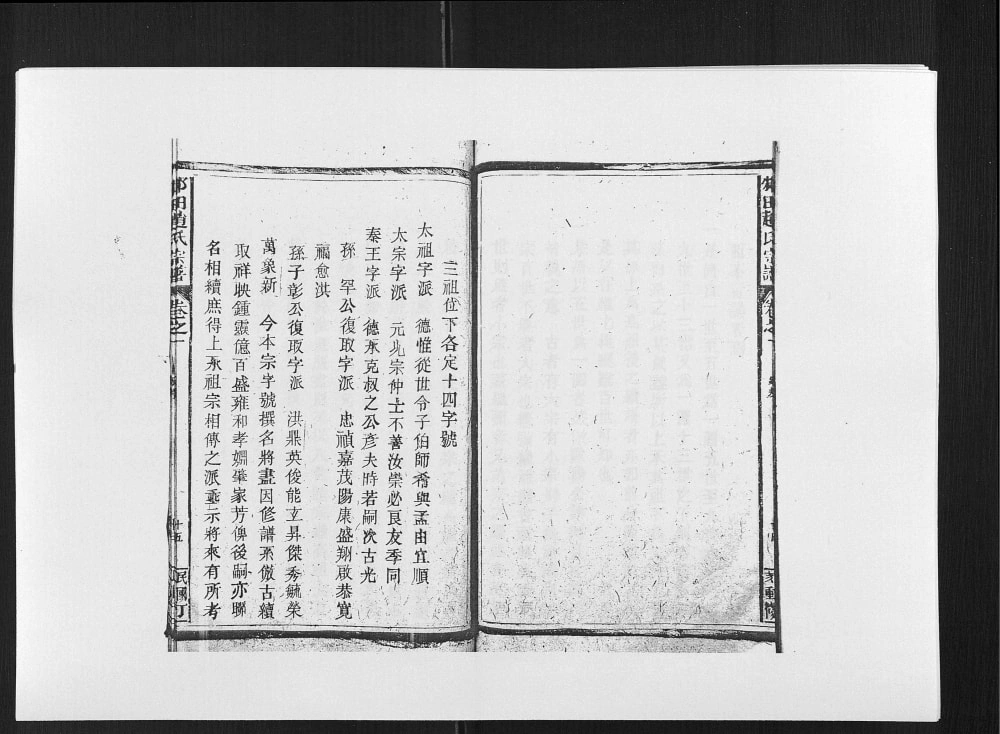 趙氏宗譜
卷之一
三祖位下各定十四字號
太祖字派 德惟從世令子伯師希與孟由宜順
太宗字派 元兆宗仲士不善汝崇必良友季同
秦王字派 德永克叔之公彥夫時若嗣次古光
孫 罕公復取字派 忠禎嘉茂陽康盛翔啟恭寬
福愈洪
孫子彰公復取字派 洪鼎英俊能立昇傑秀毓榮
萬象新 今本宗字號撰名將盡因修譜系倣古續
取祥映鍾靈億百盛雍和孝嫺肇家芳俾後嗣亦聯
名相續庶得上承祖宗相傳之派垂示將來有所考
田趙氏宗譜
卷之一
十五
民國丁